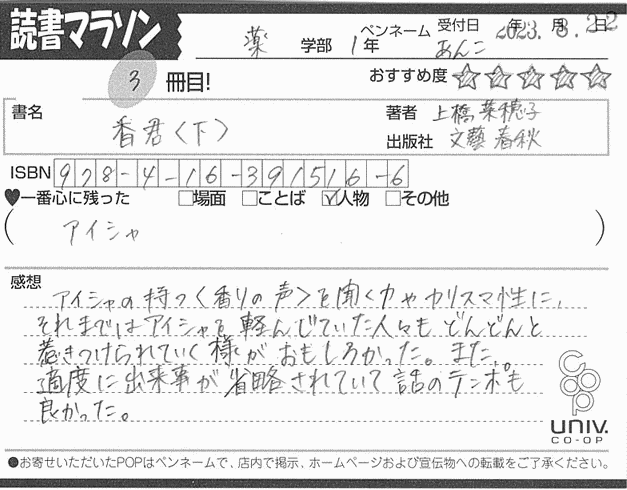 読書マラソン 薬 学部 1年 ペンネーム あんこ 受付日 2023年 3月 22日
3 冊目! おすすめ度 ☆☆☆☆☆
書名 香君〈下〉
著者 上橋菜穂子
出版社 文藝春秋
ISBN 978-4-16-391516-6
♥一番心に残った □場面 □ことば ☑人物 □その他
(アイシャ)
感想
アイシャの持つ〈香りの声〉を聞く力やカリスマ性に、
それまではアイシャを軽んじていた人々もどんどんと
惹きつけられていく様がおもしろかった。また、
適度に出来事が省略されていて話のテンポも
良かった。
coop
UNIV.
CO-OP
●お寄せいただいたPOPはペンネームで、店内で掲示、ホームページおよび宣伝物への転載をご了承ください。